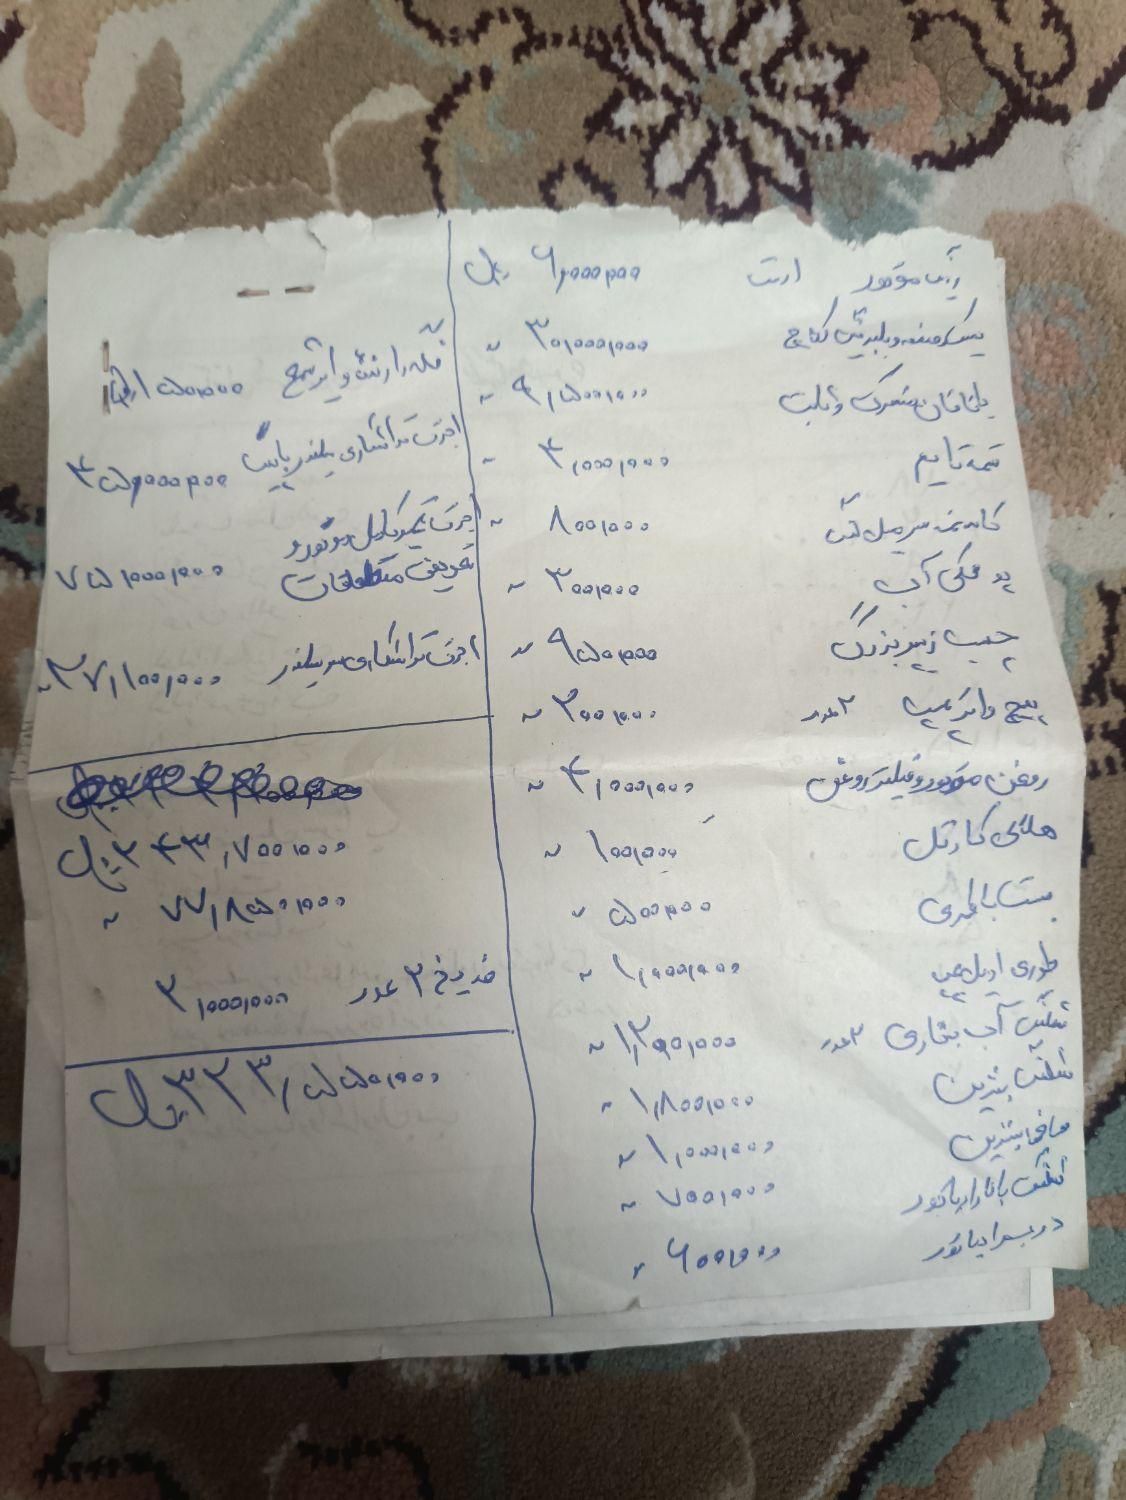 رینگ موتور ارت ۶٫۰۰۰٫۰۰۰ ریال
دیسک و صفحه و بلبرینگ کلاچ ۳۰٫۰۰۰٫۰۰۰ "
یاتاقان متحرک و ثابت ۹٫۵۰۰٫۰۰۰ "
تسمه تایم ۴٫۰۰۰٫۰۰۰ "
کاسه نمد سرمیل لنگ ۸۰۰٫۰۰۰ "
پولکی آب ۳۰۰٫۰۰۰ "
چسب زیپر بزرگ ۹۵۰٫۰۰۰ "
پیچ واترپمپ ۲ عدد ۲۰۰٫۰۰۰ "
روغن موتور و فیلتر روغن ۴٫۰۰۰٫۰۰۰ "
هلالی کارتل ۱۰۰٫۰۰۰ "
بست باطری ۵۰۰٫۰۰۰ "
طوری اویل پمپ ۱٫۰۰۰٫۰۰۰ "
شلنگ آب بخاری ۲ عدد ۱٫۲۰۰٫۰۰۰ "
شلنگ بنزین ۱٫۸۰۰٫۰۰۰ "
صافی بنزین ۱٫۰۰۰٫۰۰۰ "
شلنگ بالا رادیاتور ۷۰۰٫۰۰۰ "
درب رادیاتور ۶۰۰٫۰۰۰ "
فلدرارنگ واترپمپ ۱۵۰٫۰۰۰
اجرت تراشکاری سیلندر پایین ۴۵٫۰۰۰٫۰۰۰
اجرت تعمیر کامل موتور و
تعویض متعلقات ۷۵٫۰۰۰٫۰۰۰
اجرت تراشکاری سر سیلندر ۳۷٫۱۰۰٫۰۰۰ "
۲۴۳٫۷۰۰٫۰۰۰ ریال
۷۷٫۸۵۰٫۰۰۰ "
ضد یخ ۲ عدد ۲٫۰۰۰٫۰۰۰
۳۲۳٫۵۵۰٫۰۰۰ ریال